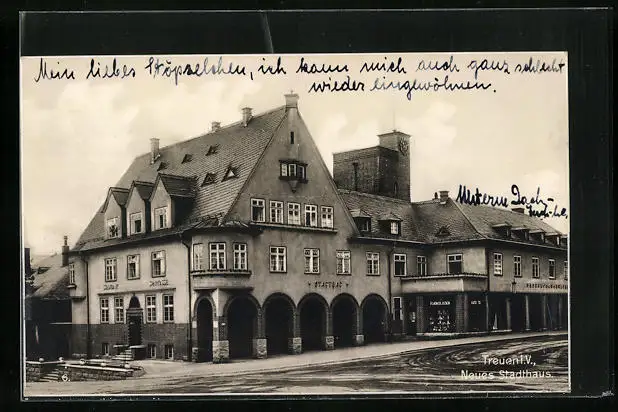 Mein liebes Stöpselchen, ich kann mich auch ganz schlecht
wieder eingewöhnen.
STADTBAD
Treuen i. V.,
Neues Stadthaus.
6.